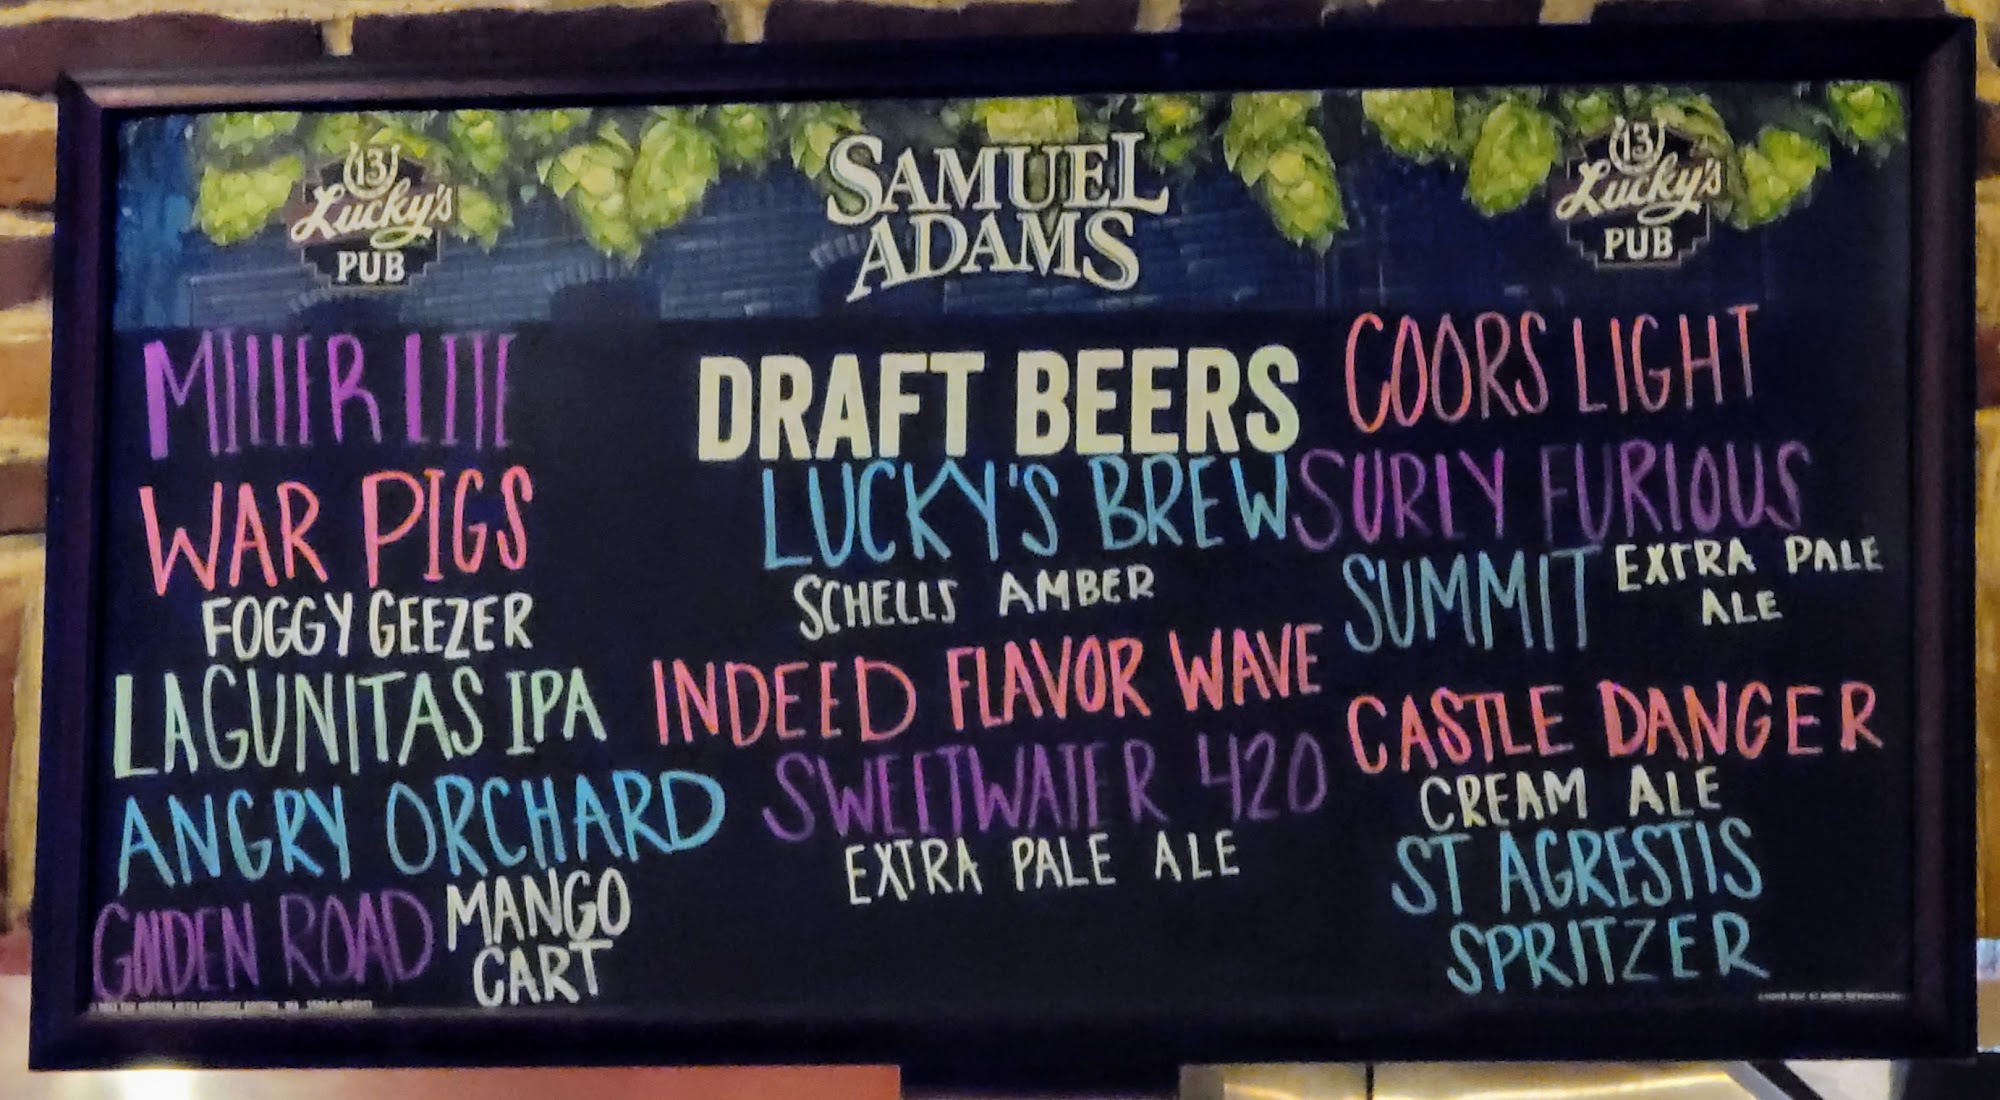 13
Lucky's
PUB
SAMUEL
ADAMS
13
Lucky's
PUB
DRAFT BEERS
MILLER LITE
WAR PIGS
FOGGY GEEZER
LAGUNITAS IPA
ANGRY ORCHARD
GOLDEN ROAD MANGO
CART
LUCKY'S BREW
SCHELLS AMBER
INDEED FLAVOR WAVE
SWEETWATER 420
EXTRA PALE ALE
COORS LIGHT
SURLY FURIOUS
SUMMIT EXTRA PALE
ALE
CASTLE DANGER
CREAM ALE
ST AGRESTIS
SPRITZER